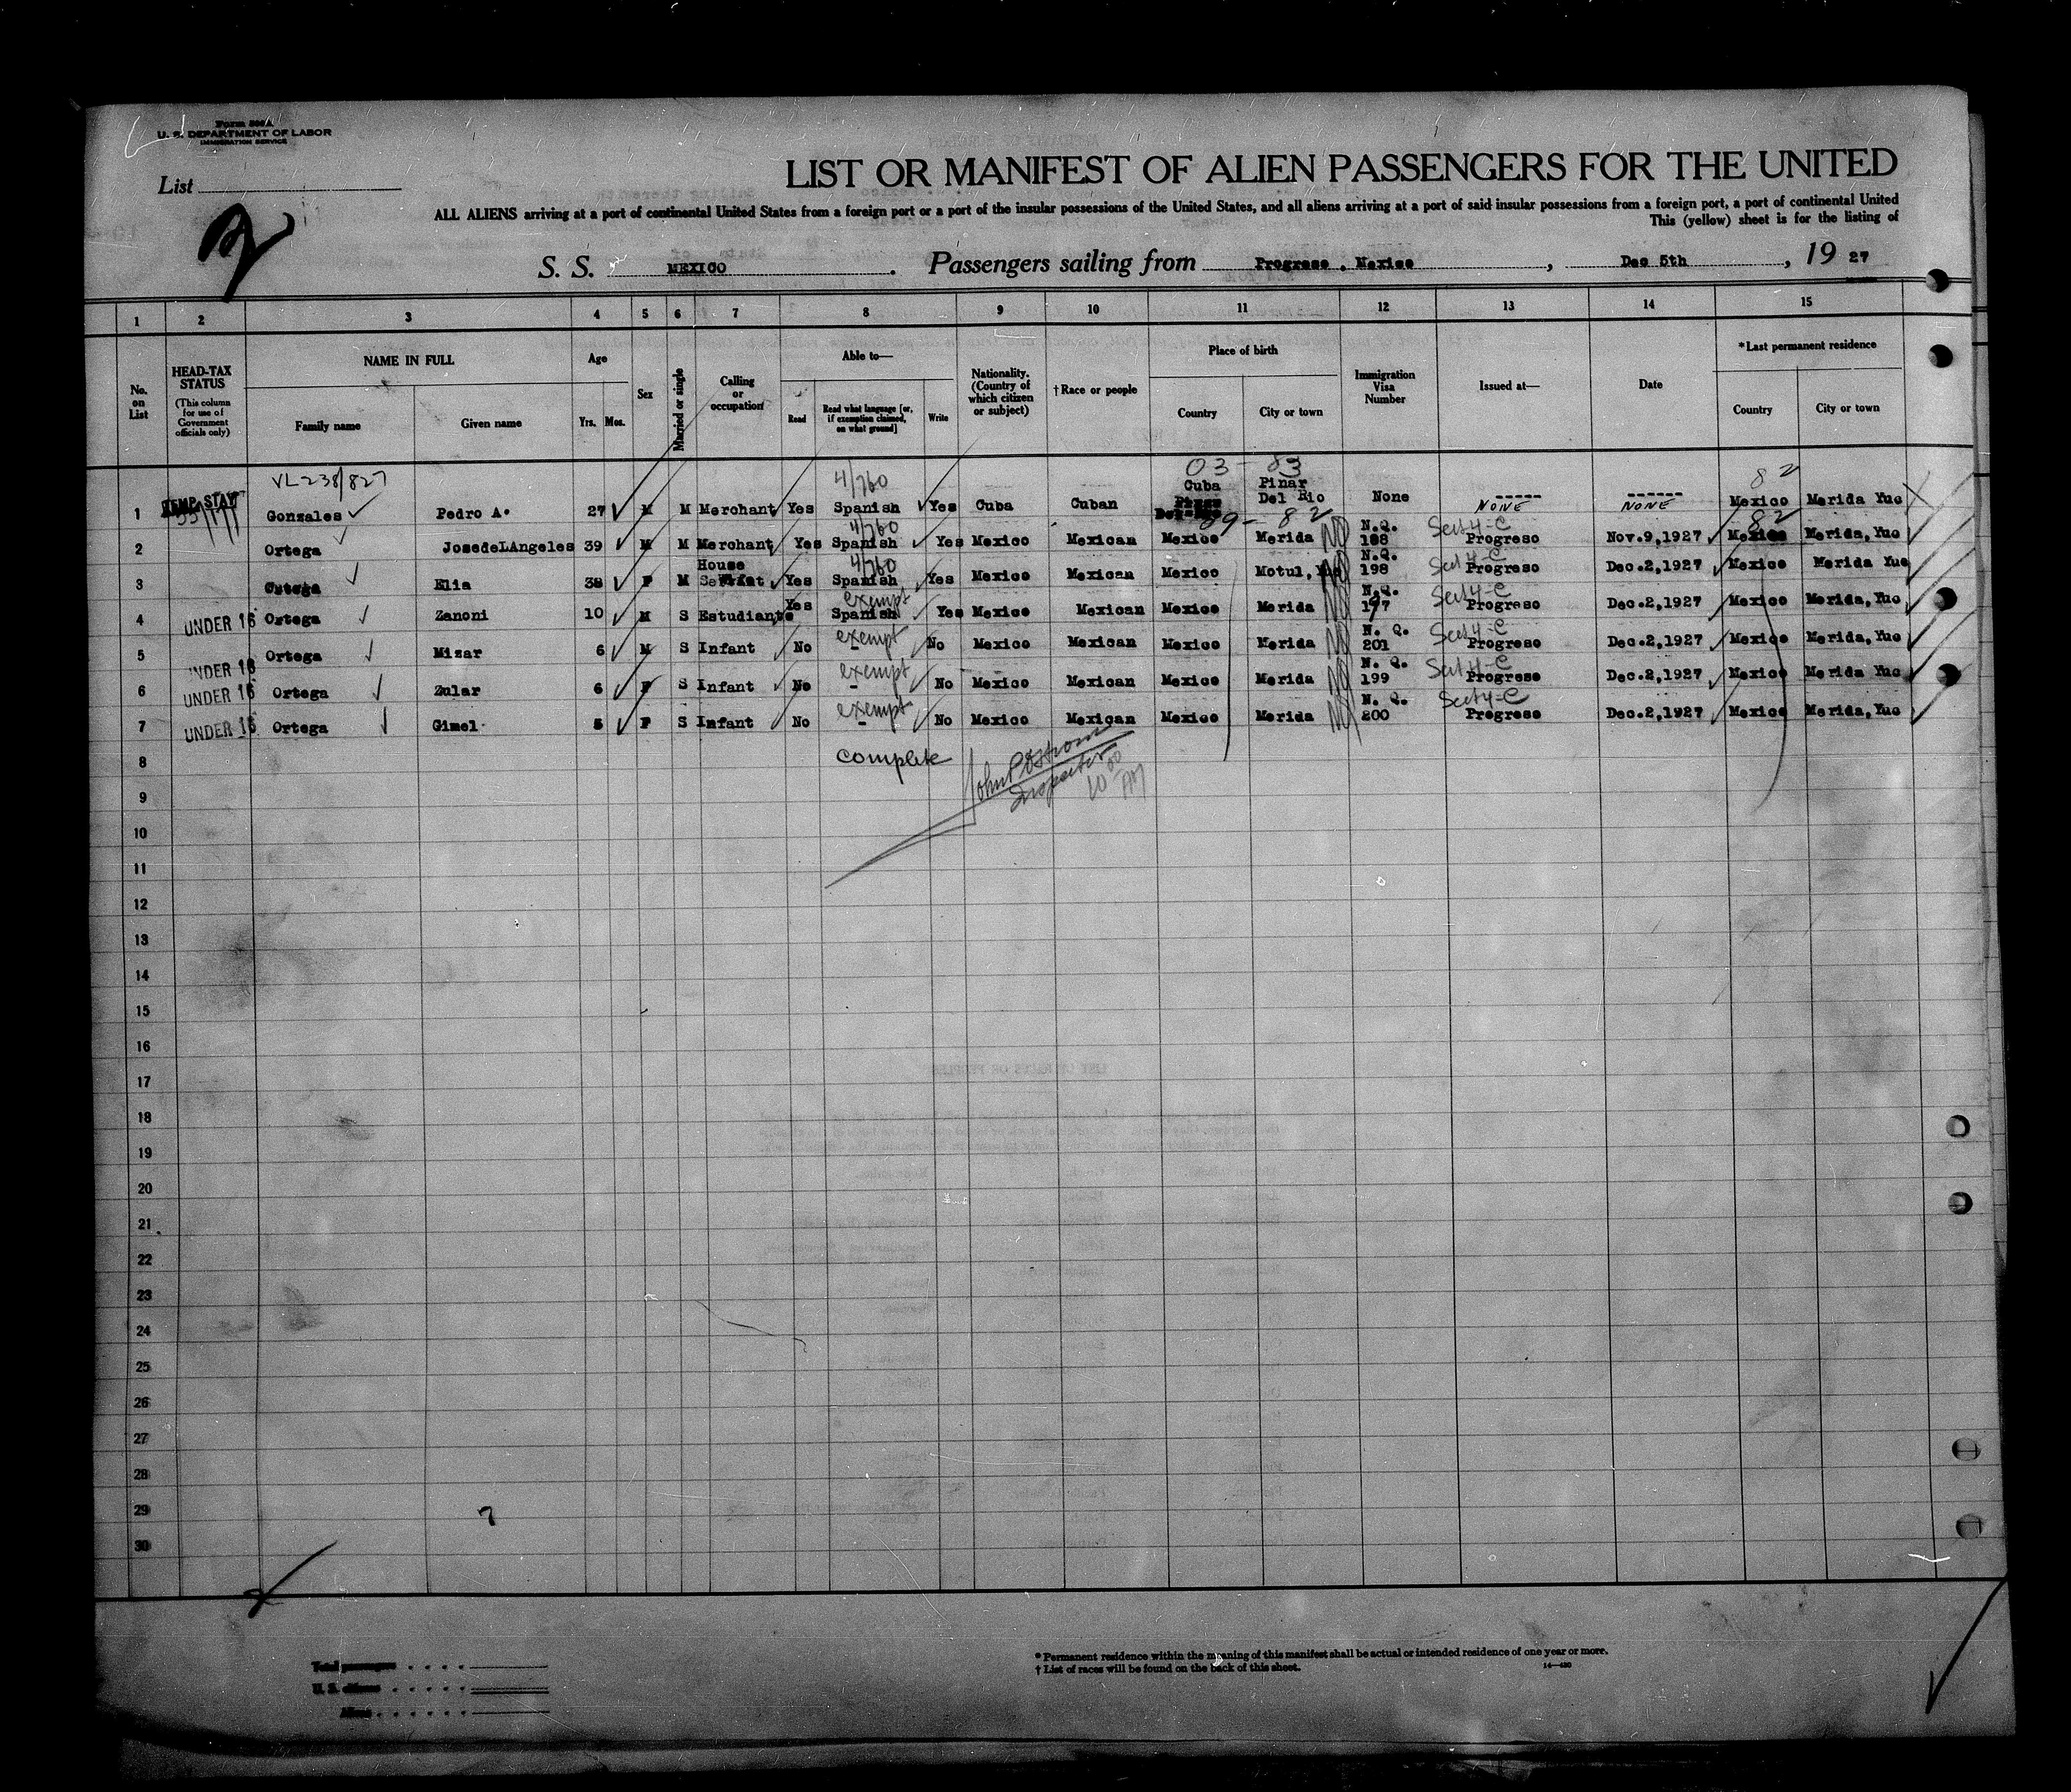 Form 500A
U. S. DEPARTMENT OF LABOR
IMMIGRATION SERVICE
List
2
LIST OR MANIFEST OF ALIEN PASSENGERS FOR THE UNITED
ALL ALIENS arriving at a port of continental United States from a foreign port or a port of the insular possessions of the United States, and all aliens arriving at a port of said insular possessions from a foreign port, a port of continental United
This (yellow) sheet is for the listing of
S. S. MEXICO . Passengers sailing from Progreso , Mexico , Dec 5th , 19 27
1 2 3 4 5 6 7 8 9 10 11 12 13 14 15
No. on List
HEAD-TAX STATUS (This column for use of Government officials only)
NAME IN FULL Family name Given name
Age Yrs. Mos.
Sex
Married or single
Calling or occupation
Able to— Read Read what language [or, if exemption claimed, on what ground] Write
Nationality. (Country of which citizen or subject)
†Race or people
Place of birth Country City or town
Immigration Visa Number
Issued at—
Date
*Last permanent residence Country City or town
VL 238/827 4/760 03 - 83 82
1 TEMP. STAY Gonzales Pedro A. 27 M M Merchant Yes Spanish Yes Cuba Cuban Cuba Pinar Del Rio None ----- NONE ------ NONE Mexico Merida Yuc
4/760 09 - 82 82
2 Ortega JosedeLAngeles 39 M M Merchant Yes Spanish Yes Mexico Mexican Mexico Merida N.Q. 188 Sect 4-C Progreso Nov.9,1927 Mexico Merida,Yuc
4/760
3 Ortega Elia 38 F M House Yes Spanish Yes Mexico Mexican Mexico Motul, Yuc N.Q. 198 Sect 4-C Progreso Dec.2,1927 Mexico Merida Yuc
exempt
4 UNDER 16 Ortega Zanoni 10 M S Estudiante Yes Spanish Yes Mexico Mexican Mexico Merida N.Q. 197 Sect 4-C Progreso Dec.2,1927 Mexico Merida,Yuc
5 UNDER 16 Ortega Mizar 6 M S Infant No exempt - No Mexico Mexican Mexico Merida N. Q. 201 Sect 4-C Progreso Dec.2,1927 Mexico Merida,Yuc
6 UNDER 16 Ortega Zular 6 F S Infant No exempt - No Mexico Mexican Mexico Merida N. Q. 199 Sect 4-C Progreso Dec.2,1927 Mexico Merida Yuc
7 UNDER 16 Ortega Gimel 5 F S Infant No exempt - No Mexico Mexican Mexico Merida N. Q. 200 Sect 4-C Progreso Dec.2,1927 Mexico Merida,Yuc
8 complete
Inspector
10 00 AM
9
10
11
12
13
14
15
16
17
18
19
20
21
22
23
24
25
26
27
28
29 7
30
Total passengers
U. S. citizens
Aliens
* Permanent residence within the meaning of this manifest shall be actual or intended residence of one year or more.
† List of races will be found on the back of this sheet.
14—430